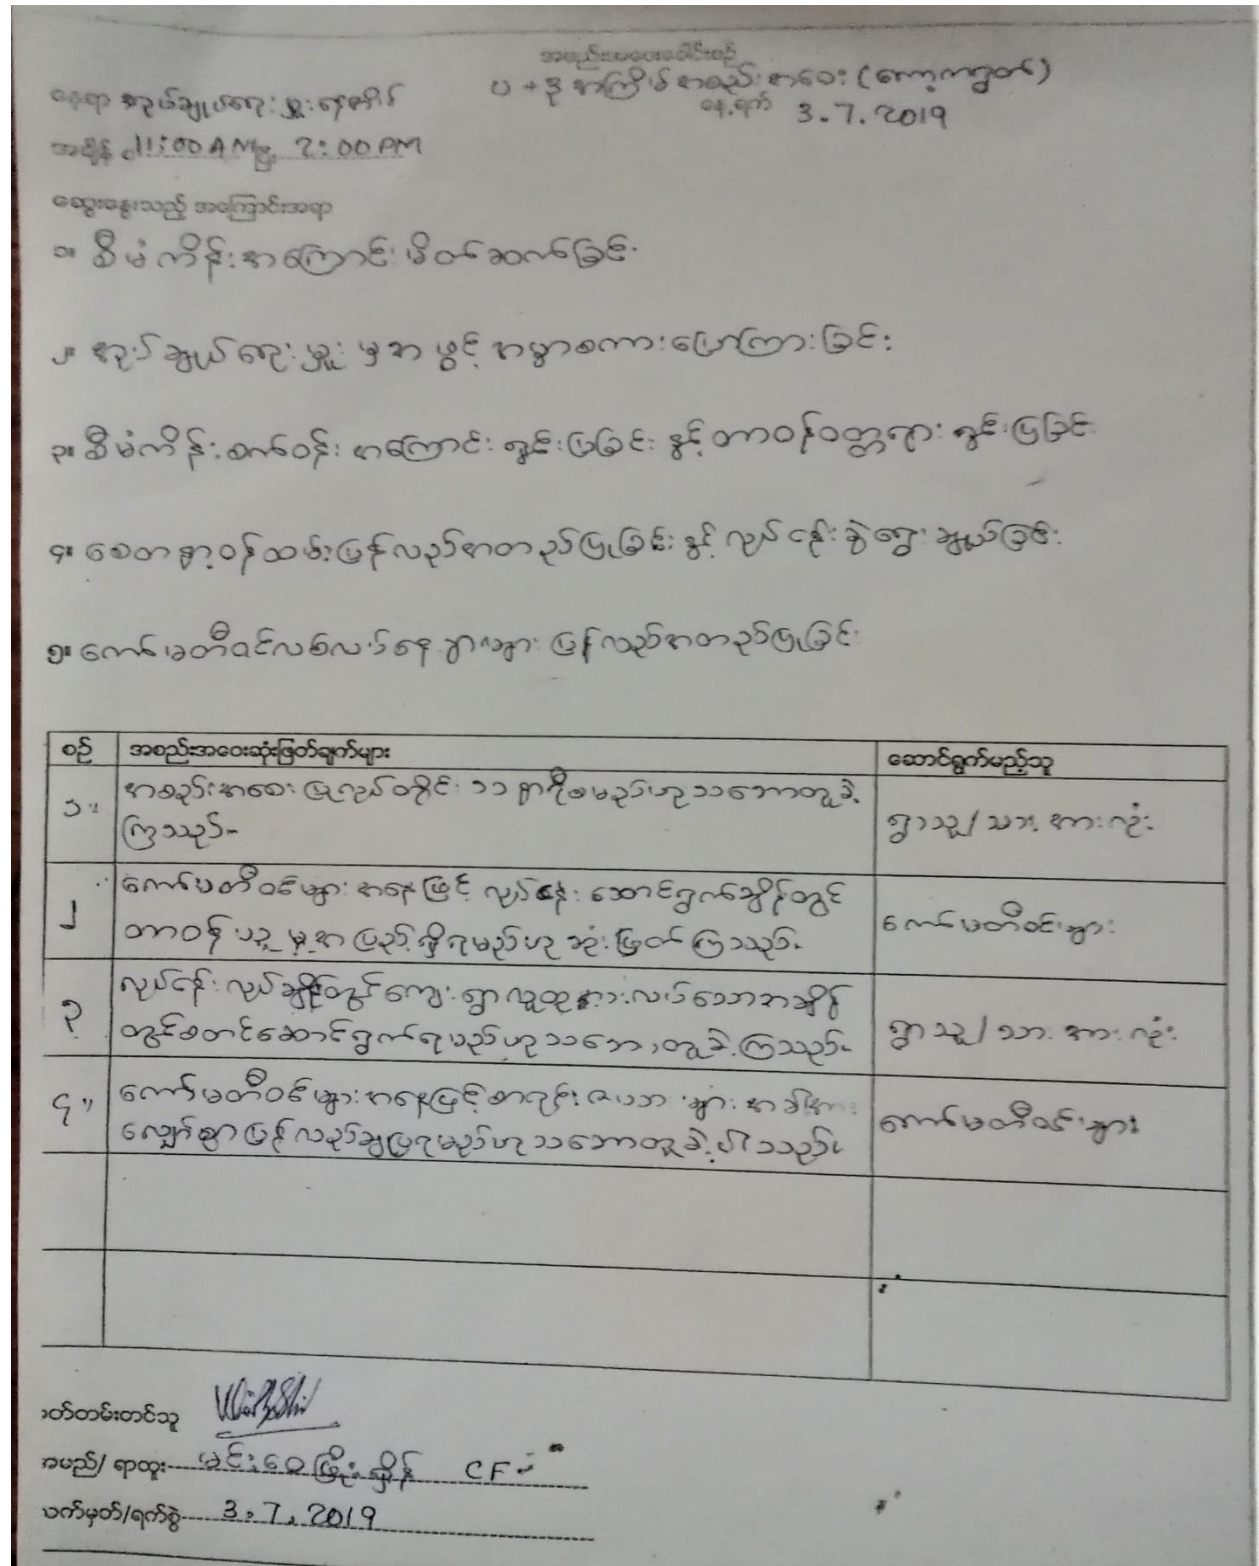 အစည်းအဝေးခေါင်းစဉ်
ပ + ဒု အကြိမ် အစည်းအဝေး (ကော့ကရွတ်)
နေရာ အုပ်ချုပ်ရေးမှူးနေအိမ်
နေ့ရက် 3.7.2019
အချိန် 11:00 AM မှ 2:00 PM
ဆွေးနွေးသည့် အကြောင်းအရာ
၁။ စီမံကိန်းအကြောင်း မိတ်ဆက်ခြင်း
၂။ အုပ်ချုပ်ရေးမှူးမှ အဖွင့် အမှာစကားပြောကြားခြင်း
၃။ စီမံကိန်းစက်ဝန်း အကြောင်း ရှင်းပြခြင်း နှင့် တာဝန်ဝတ္တရား ရှင်းပြခြင်း
၄။ စေတနာ့ဝန်ထမ်းပြန်လည်အတည်ပြုခြင်း နှင့် လုပ်ငန်းခွဲရွေးချယ်ခြင်း
၅။ ကော်မတီဝင်လစ်လပ်နေရာများ ပြန်လည်အတည်ပြုခြင်း
စဉ် အစည်းအဝေးဆုံးဖြတ်ချက်များ ဆောင်ရွက်မည့်သူ
၁။ အစည်းအဝေး ပြုလုပ်တိုင်း ၁၁ နာရီစမည်ဟု သဘောတူခဲ့
ကြသည်။ ရွာသူ/သား အားလုံး
၂ ကော်မတီဝင်များ အနေဖြင့် လုပ်ငန်း ဆောင်ရွက်ချိန်တွင်
တာဝန်ယူမှုအပြည့်ရှိရမည်ဟု ဆုံးဖြတ်ကြသည်။ ကော်မတီဝင်များ
၃ လုပ်ငန်း လုပ်ချိန်တွင် ကျေးရွာလူထုအားလပ်သောအချိန်
တွင်စတင်ဆောင်ရွက်ရမည်ဟု သဘောတူခဲ့ကြသည်။ ရွာသူ/သား အားလုံး
၄။ ကော်မတီဝင်များအနေဖြင့် စာရင်းဇယားများ အခါအား
လျော်စွာ ပြန်လည်ချပြရမည်ဟု သဘောတူခဲ့ပါသည်။ ကော်မတီဝင်များ
မှတ်တမ်းတင်သူ
အမည်/ ရာထူး မင်းဝေဖြိုးရှိန် CF
လက်မှတ်/ရက်စွဲ 3.7.2019